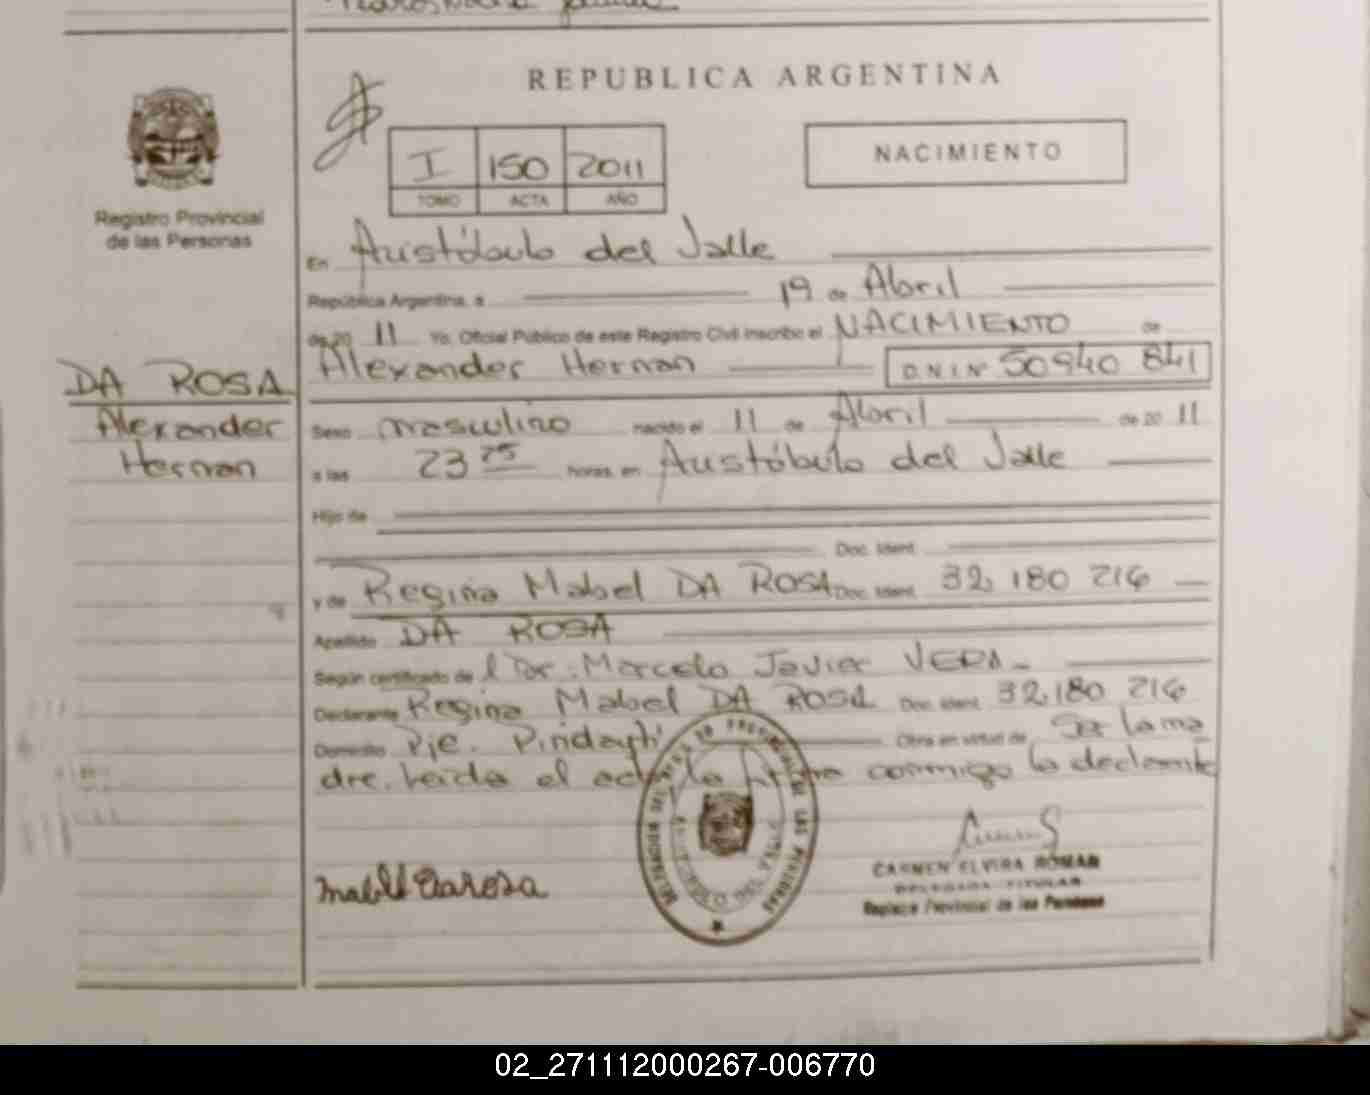 REPUBLICA ARGENTINA
I 150 2011
TOMO ACTA AÑO
NACIMIENTO
Registro Provincial
de las Personas
En Aristóbulo del Valle
República Argentina, a 19 de Abril
de 20 11 Yo, Oficial Público de este Registro Civil inscribo el NACIMIENTO de
Alexander Hernan D.N.I. Nº 50940 841
DA ROSA
Alexander
Hernan
Sexo masculino nacido el 11 de Abril de 20 11
a las 23 25 horas, en Aristóbulo del Valle
Hijo de
Doc. Ident.
y de Regina Mabel DA ROSA Doc. Ident. 32.180 216
Apellido DA ROSA
Según certificado de l Dr. Marcelo Javier VERA
Declarante Regina Mabel DA ROSA Doc. Ident. 32.180 216
Domicilio Pje. Pindayti Obra en virtud de Ser la ma
dre. Leída el acta la firma conmigo la declarante
Mabel Darosa
CARMEN ELVIRA ROMAN
DELEGADA TITULAR
Registro Provincial de las Personas
02_271112000267-006770